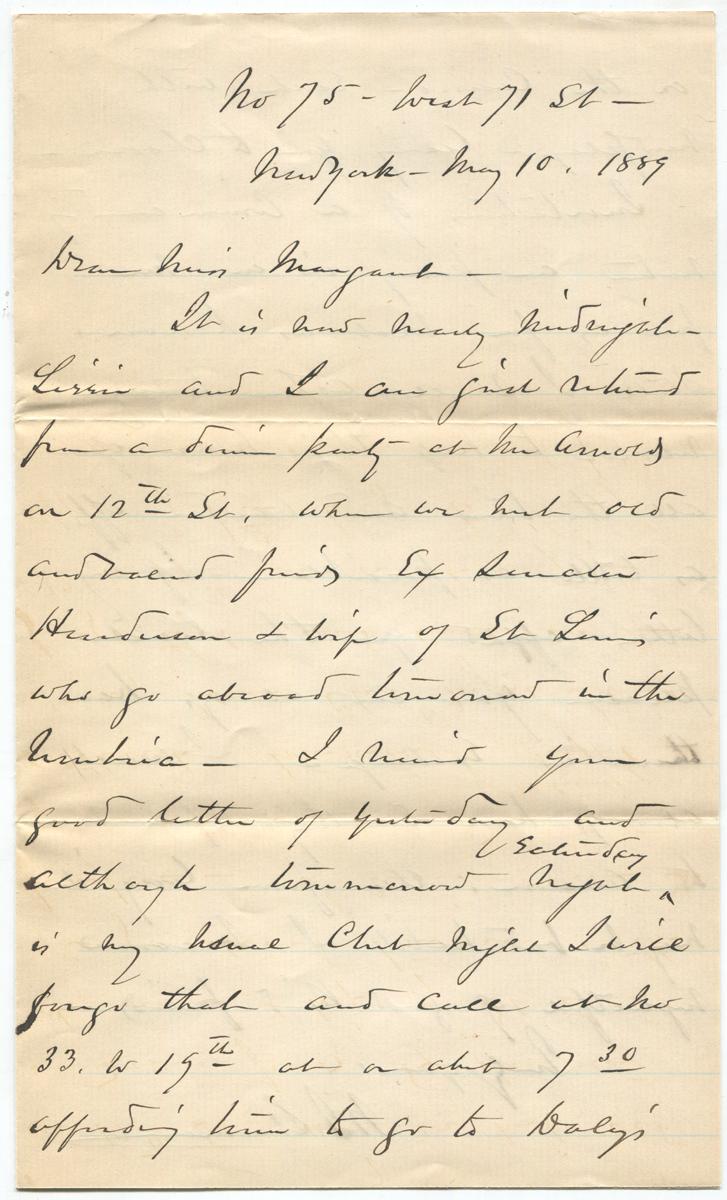 No 75 - West 71 St -
New York - May 10. 1889
Dear Miss Margaret -
It is now nearly midnight -
Lizzie and I are just returned
from a dinner party at Mr Arnolds
on 12th St, when we met old
and valued friends Ex Senator
Henderson & wife of St Louis
who go abroad tomorrow in the
Umbria - I received your
good letter of yesterday and
although tommorrow night ^ Saturday
is my usual Club night I will
forego that and call at No
33. W 19th at or about 7 30
affording time to go to Daly's